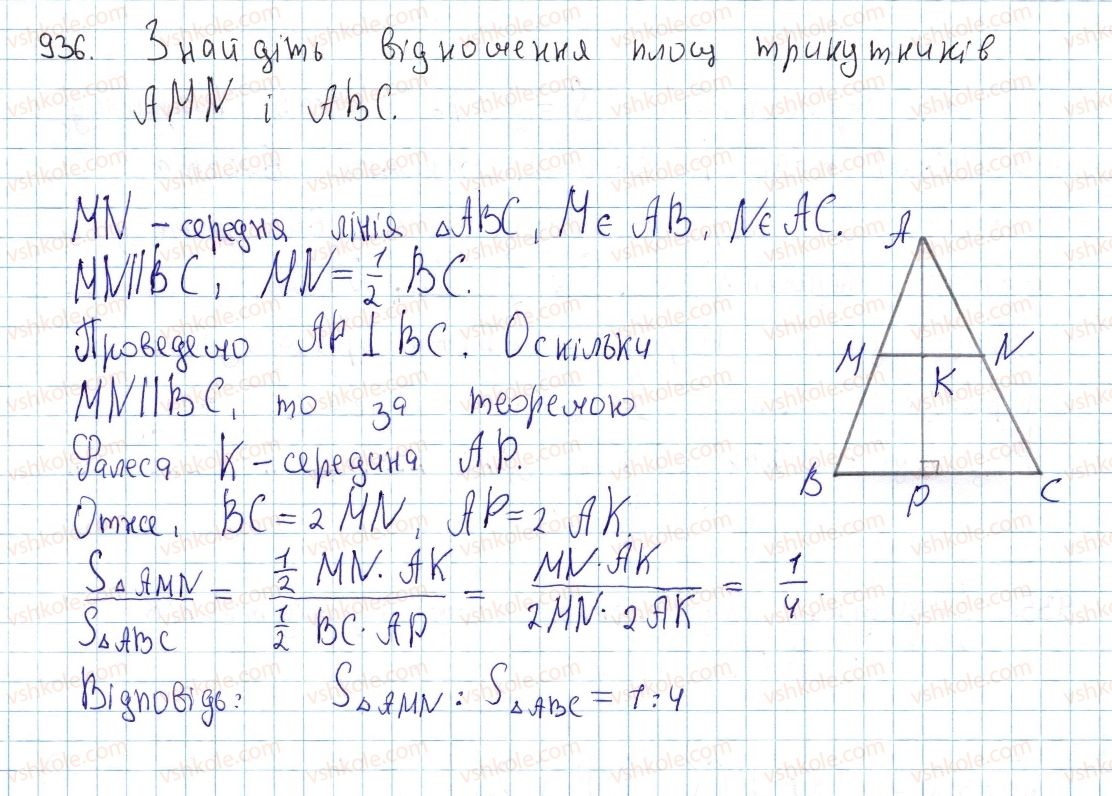 936. Знайдіть відношення площ трикутників
AMN і ABC.
MN – середня лінія △ABC, M є AB, N є AC.
MN||BC, MN = 1/2 BC.
Проведемо AP ⊥ BC. Оскільки
MN||BC, то за теоремою
Фалеса K – середина AP.
Отже, BC = 2 MN, AP = 2 AK.
S△AMN / S△ABC = (1/2 MN · AK) / (1/2 BC · AP) = (MN · AK) / (2MN · 2AK) = 1/4.
Відповідь: S△AMN : S△ABC = 1:4
A
M N
K
B P C